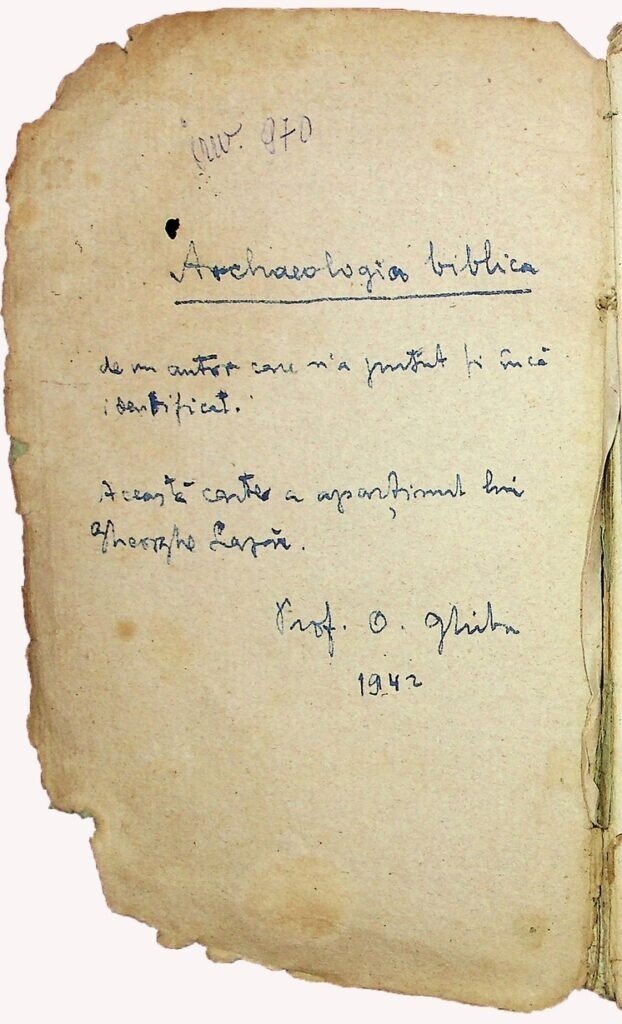 inv. 970
Archaeologia biblica
de un autor care n'a putut fi încă
identificat.
Această carte a aparținut lui
Gheorghe Lazăr.
Prof. O. Ghibu
1942